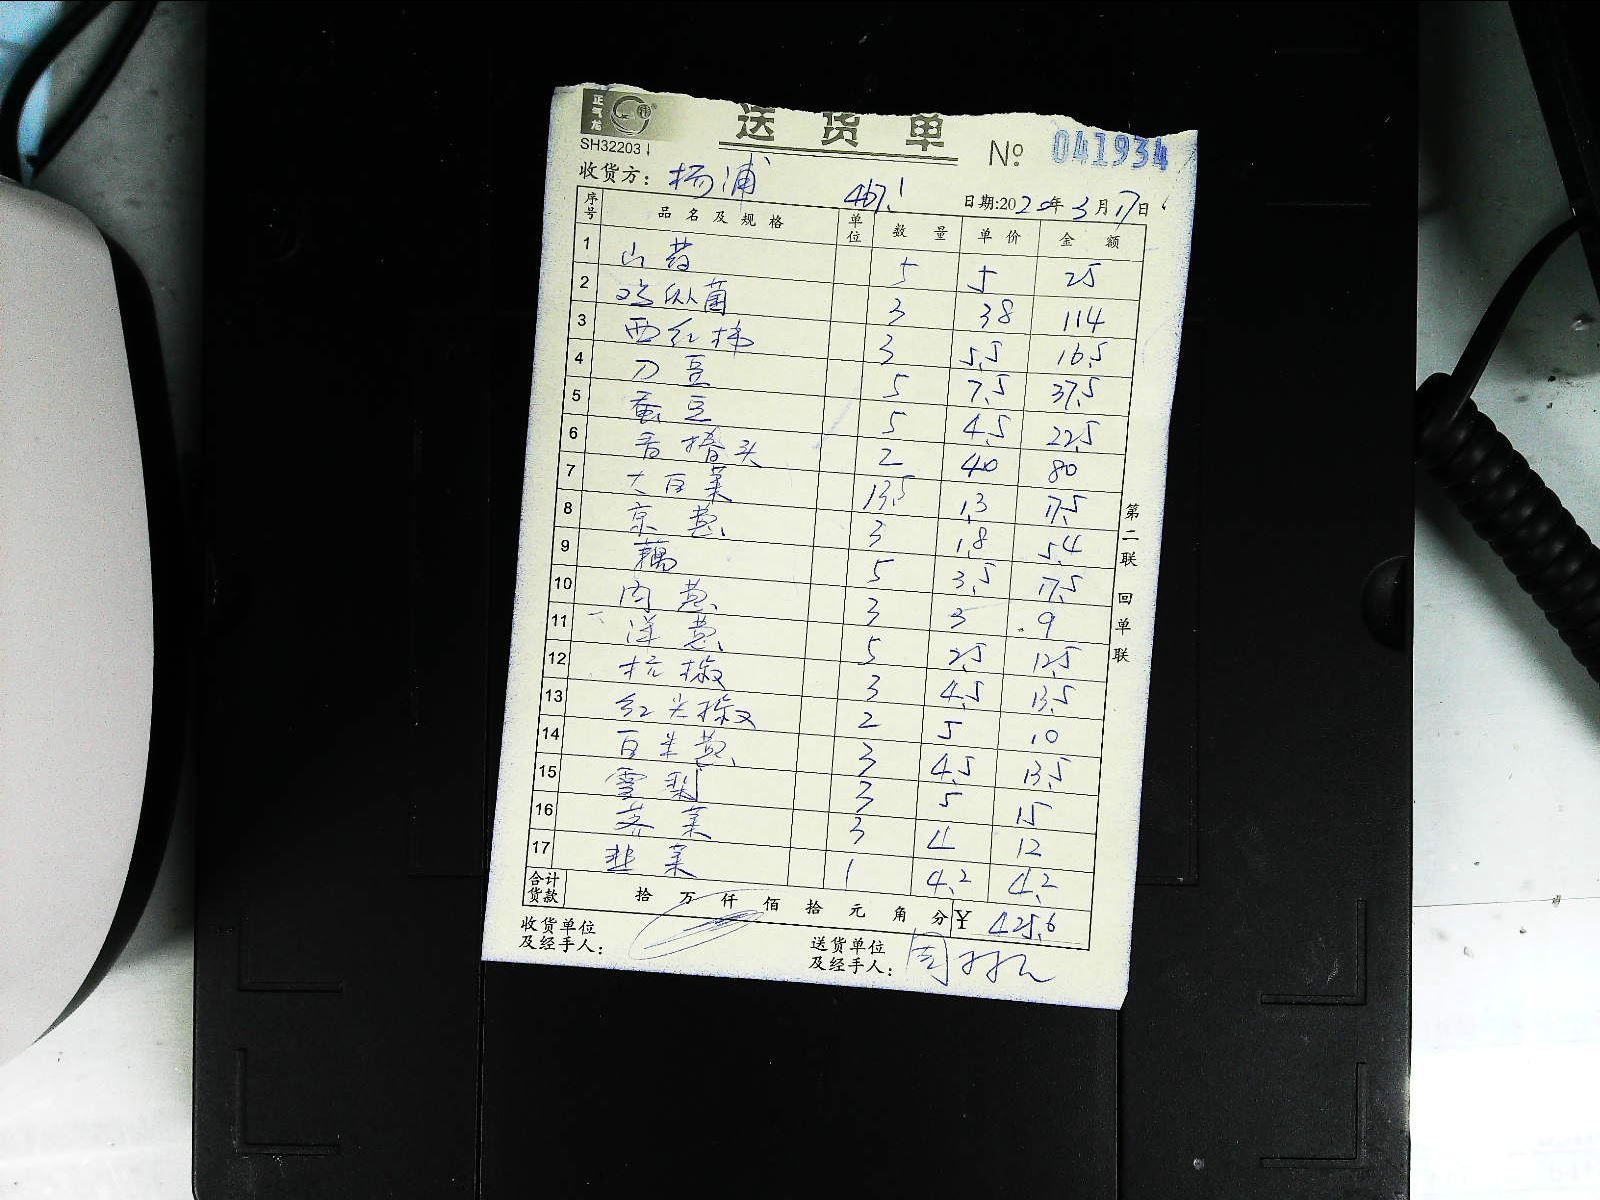 正气龙
送货单
SH32203
No 041934
收货方: 杨浦 日期:2020年3月17日
序号 品名及规格 单位 数量 单价 金额
1 山药 5 5 25
2 鸡枞菌 3 38 114
3 西红柿 3 5.5 16.5
4 刀豆 5 7.5 37.5
5 蚕豆 5 4.5 22.5
6 香椿头 2 40 80
7 大白菜 13.5 1.3 17.5
8 京葱 3 1.8 5.4
9 藕 5 3.5 17.5
10 肉葱 3 3 9
11 洋葱 5 2.5 12.5
12 杭椒 3 4.5 13.5
13 红尖椒 2 5 10
14 白米葱 3 4.5 13.5
15 雪梨 3 5 15
16 荠菜 3 4 12
17 韭菜 1 4.2 4.2
合计货款 拾 万 仟 佰 拾 元 角 分 ¥ 425.6
收货单位及经手人:
送货单位及经手人: 周
第二联 回单联